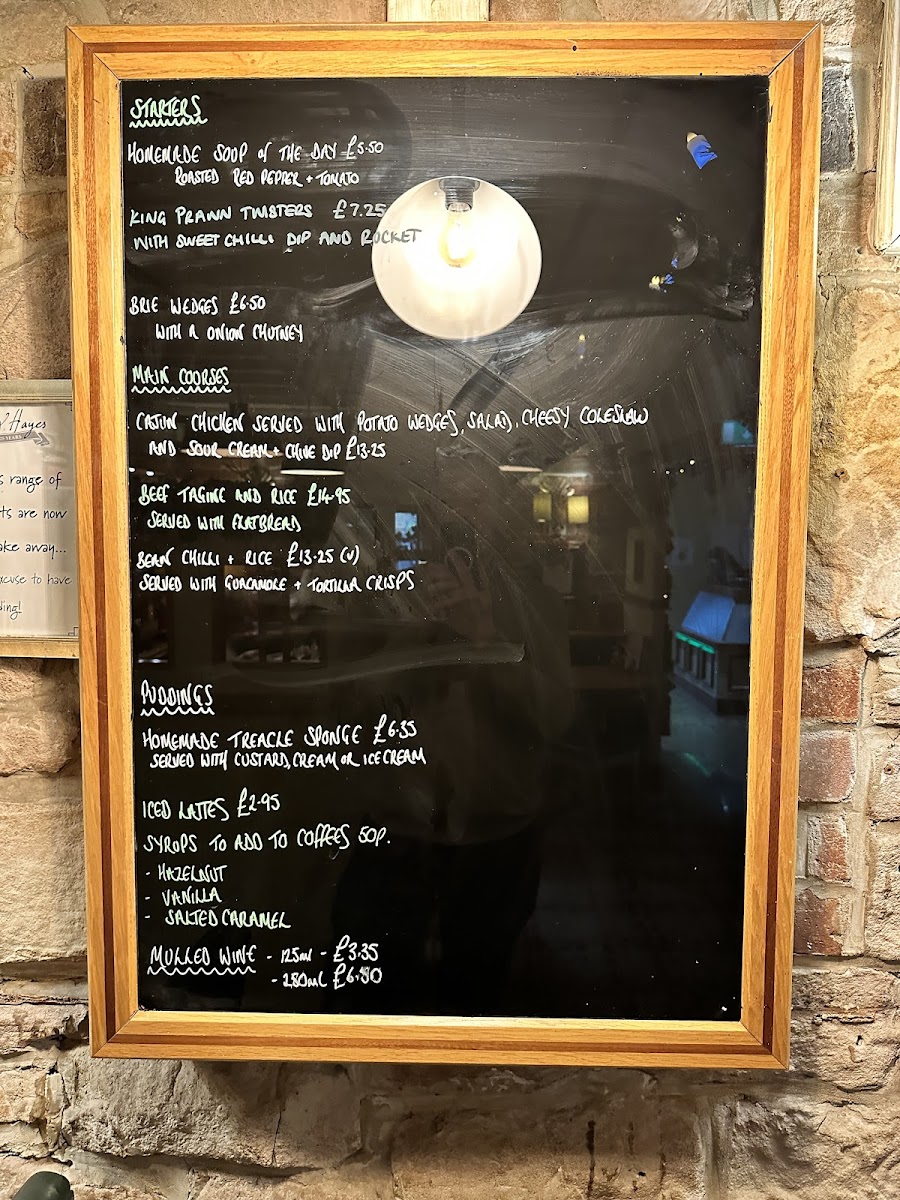 STARTERS
HOMEMADE SOUP of THE DAY £5.50
ROASTED RED PEPPER + TOMATO
KING PRAWN TWISTERS £7.25
WITH SWEET CHILLI DIP AND ROCKET
BRIE WEDGES £6.50
WITH A ONION CHUTNEY
MAIN COURSES
CAJUN CHICKEN SERVED WITH POTATO WEDGES, SALAD, CHEESY COLESLAW
AND SOUR CREAM + CHIVE DIP £13.25
BEEF TAGINE AND RICE £14.95
SERVED WITH FLATBREAD
BEAN CHILLI + RICE £13.25 (V)
SERVED WITH GUACAMOLE + TORTILLA CRISPS
PUDDINGS
HOMEMADE TREACLE SPONGE £6.35
SERVED WITH CUSTARD, CREAM OR ICE CREAM
ICED LATTES £2.95
SYRUPS TO ADD TO COFFEES 50P.
- HAZELNUT
- VANILLA
- SALTED CARAMEL
MULLED WINE - 125ml - £3.35
- 250ml £6.50
Hayes
range of
ts are now
ake away...
xcuse to have
ding!